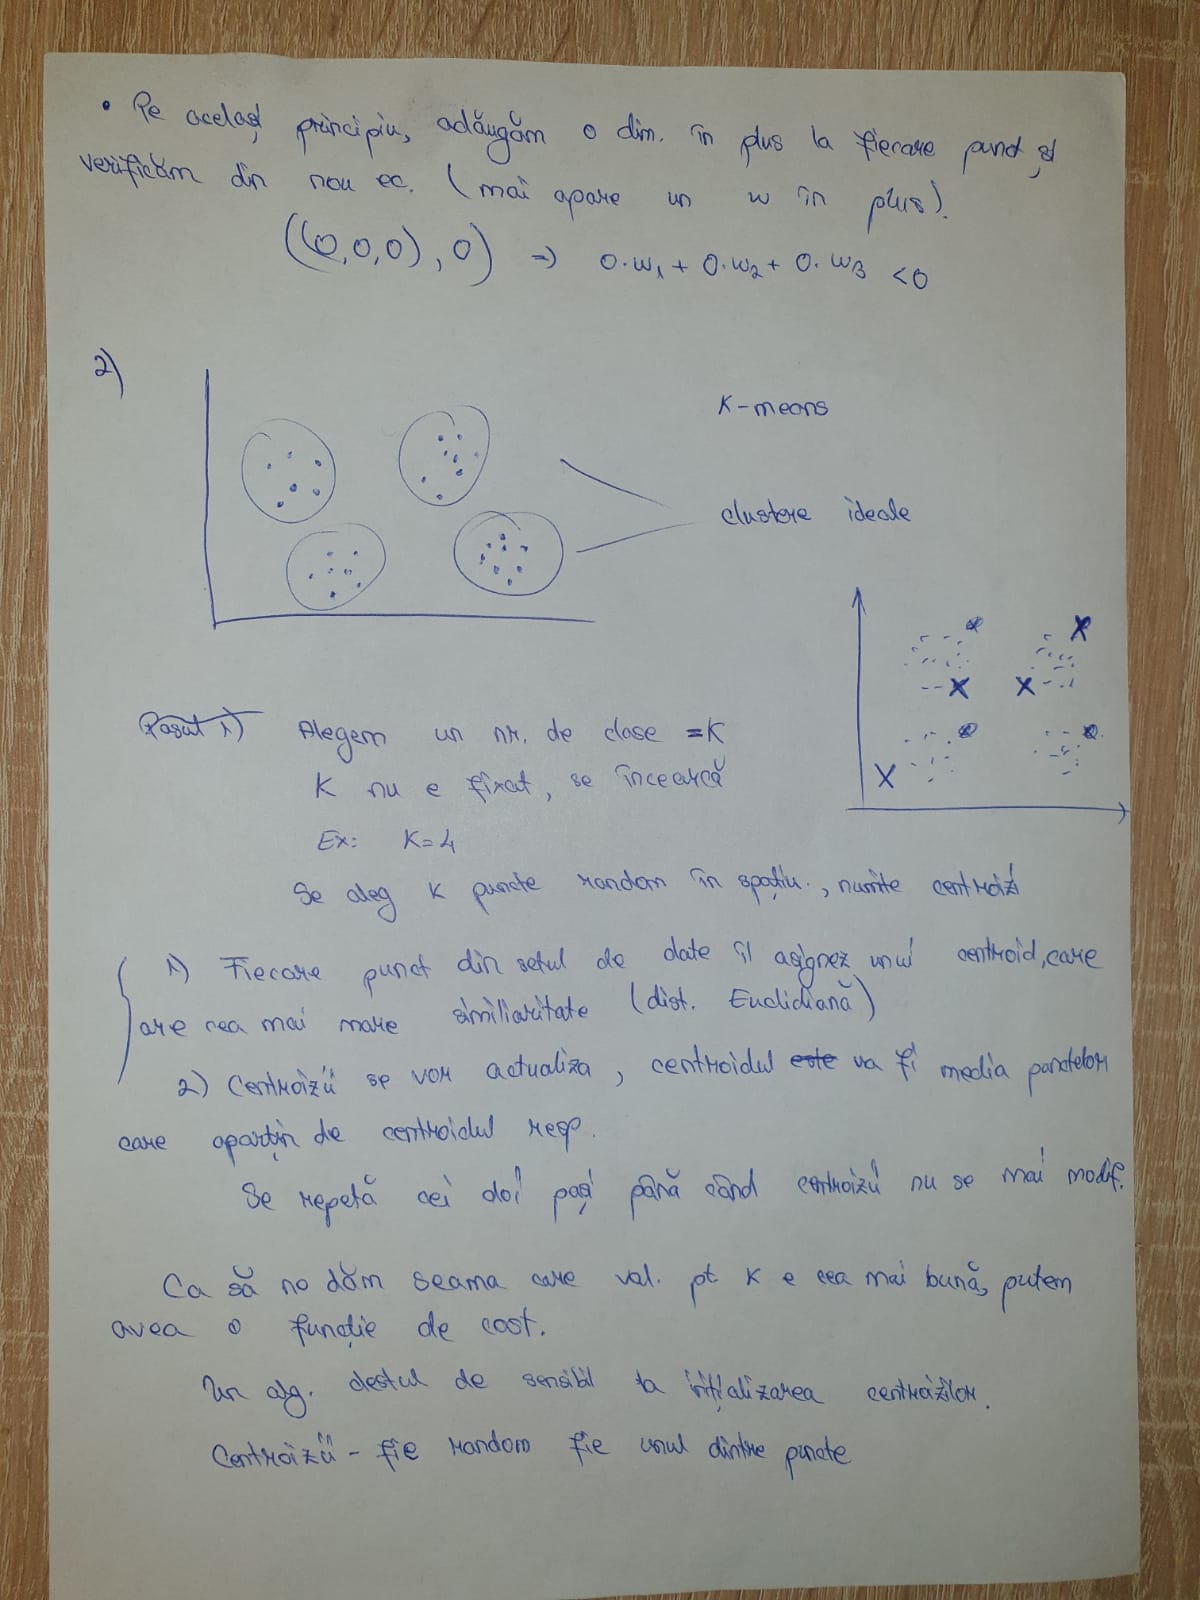 • Pe același principiu, adăugăm o dim. în plus la fiecare punct și
verificăm din nou ec. (mai apare un w în plus).
((0,0,0), 0) => 0·w1 + 0·w2 + 0·w3 <0
2)
K-means
clustere ideale
Pasul 1) Alegem un nr. de clase =K
K nu e fixat, se încearcă
Ex: K=4
Se aleg K puncte random în spațiu., numite centroizi
1) Fiecare punct din setul de date îl asignez unui centroid, care
are cea mai mare similiaritate (dist. Euclidiană)
2) Centroizii se vor actualiza, centroidul este va fi media punctelor
care aparțin de centroidul resp.
Se repetă cei doi pași până când centroizii nu se mai modif.
Ca să ne dăm seama care val. pt K e cea mai bună, putem
avea o funcție de cost.
Un alg. destul de sensibil la inițializarea centroizilor.
Centroizii - fie random fie unul dintre puncte